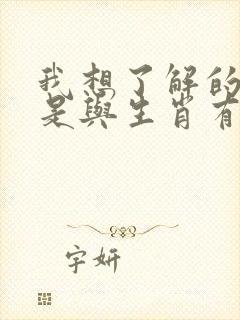 我想了解的
是與生肖有
字妍